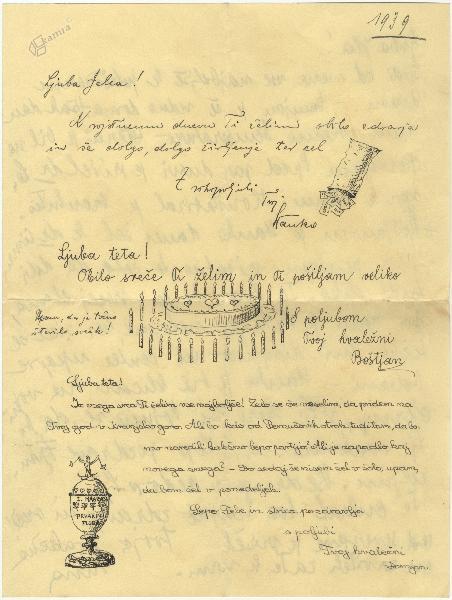 kamra
1939
Ljuba Jelca!
K rojstnemu dnevu Ti želim obilo zdravja
in še dolgo, dolgo življenje ter cel
Z rokopoljubi
Tvoj
Stanko
Ljuba teta!
Obilo sreče Ti želim in Ti pošiljam veliko
število svečk!
S poljubom
Tvoj hvaležni
Boštjan
Ljuba teta!
Iz vsega srca Ti želim vse najboljše! Zelo se že veselim, da pridem na
Tvoj god v Kranjsko goro. Ali bo kdo od strok tudi tam, da bo
mo naredili kakšno lepo partijo? Ali je zapadlo kaj
novega snega? – Do sedaj še nisem šel v šolo, upam,
da bom šel v ponedeljek.
Lepo Tebe in strica pozdravlja
s poljubi
Tvoj hvaležni
I. NAGRADA
PRVAK